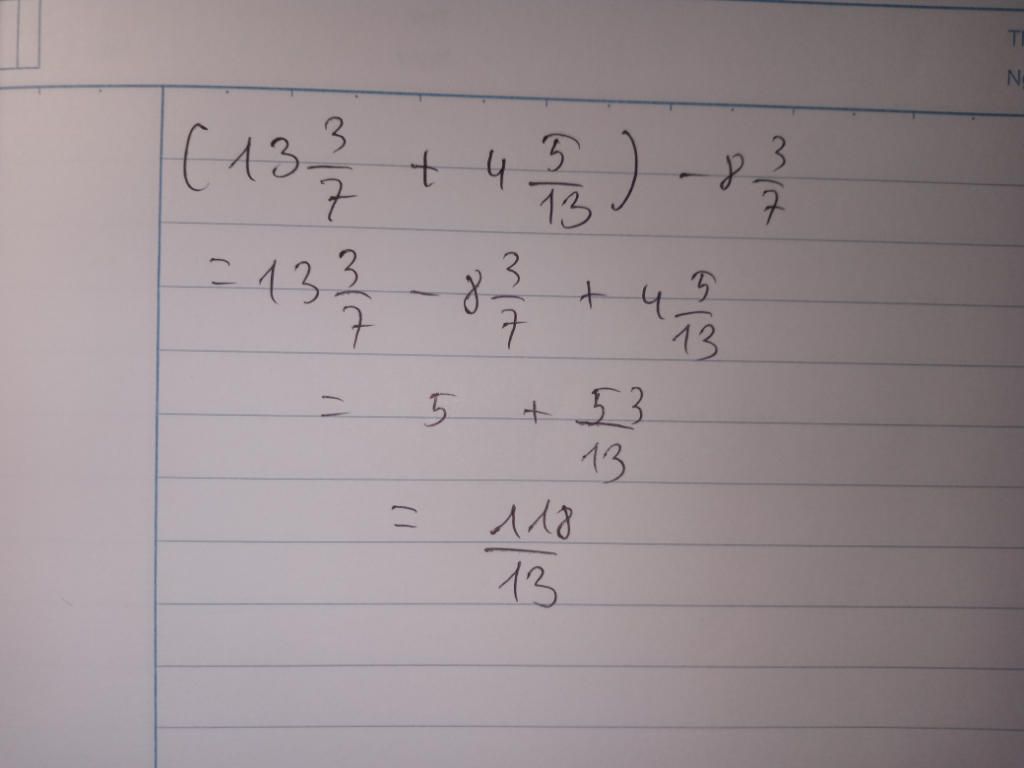 (13 3/7 + 4 5/13) - 8 3/7
= 13 3/7 - 8 3/7 + 4 5/13
= 5 + 53/13
= 118/13